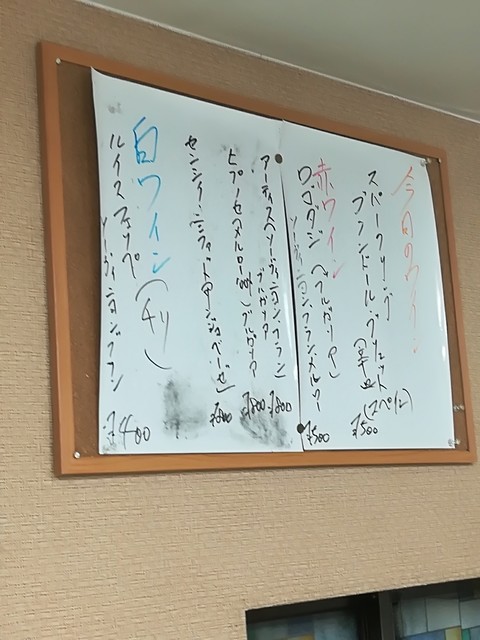 今日のワイン
スパークリング
ブランドール・ブリュット(辛口)(スペイン)
¥500
赤ワイン
ロゴダジ(ブルガリア)
ソーヴィニヨン・ブラン・メルロー
¥500
アーティスベソーヴィニヨン・ブラン
ブルガリア
¥1800
ヒプノーゼメルロー ブルガリア
¥1800
センシィ・
白ワイン(チリ)
ルイスフェリペ
ソーヴィニヨンブラン
¥400